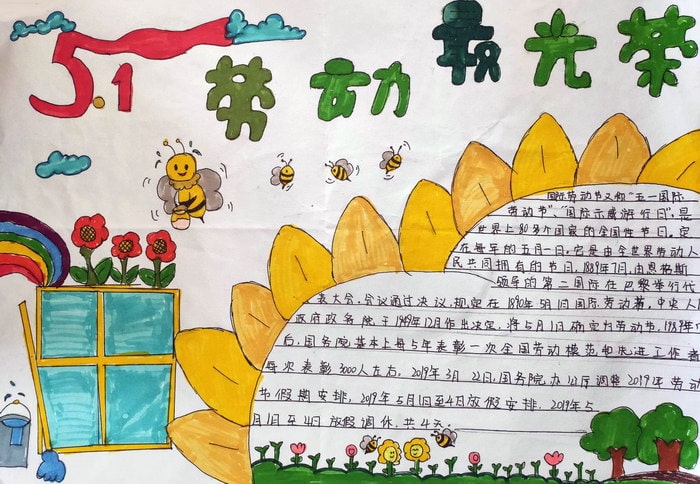 5.1
劳动最光荣
国际劳动节又称“五一国际
劳动节”、“国际示威游行日”,是
世界上80多个国家的全国性节日,定
在每年的五月一日,它是由全世界劳动人
民共同拥有的节日,1889年7月,由恩格斯
领导的第二国际在巴黎举行代
表大会,会议通过决议,规定在1890年5月1日国际劳动者,中央人
政府政务院于1949年12月作出决定,将5月1日确定为劳动节,1989年
后,国务院基本上每5年表彰一次全国劳动模范和先进工作者
每次表彰3000人左右。2019年3月22日,国务院办公厅调整2019年劳动
节假期安排,2019年5月1日至4日放假安排,2019年5
月1日至4日放假调休,共4天。